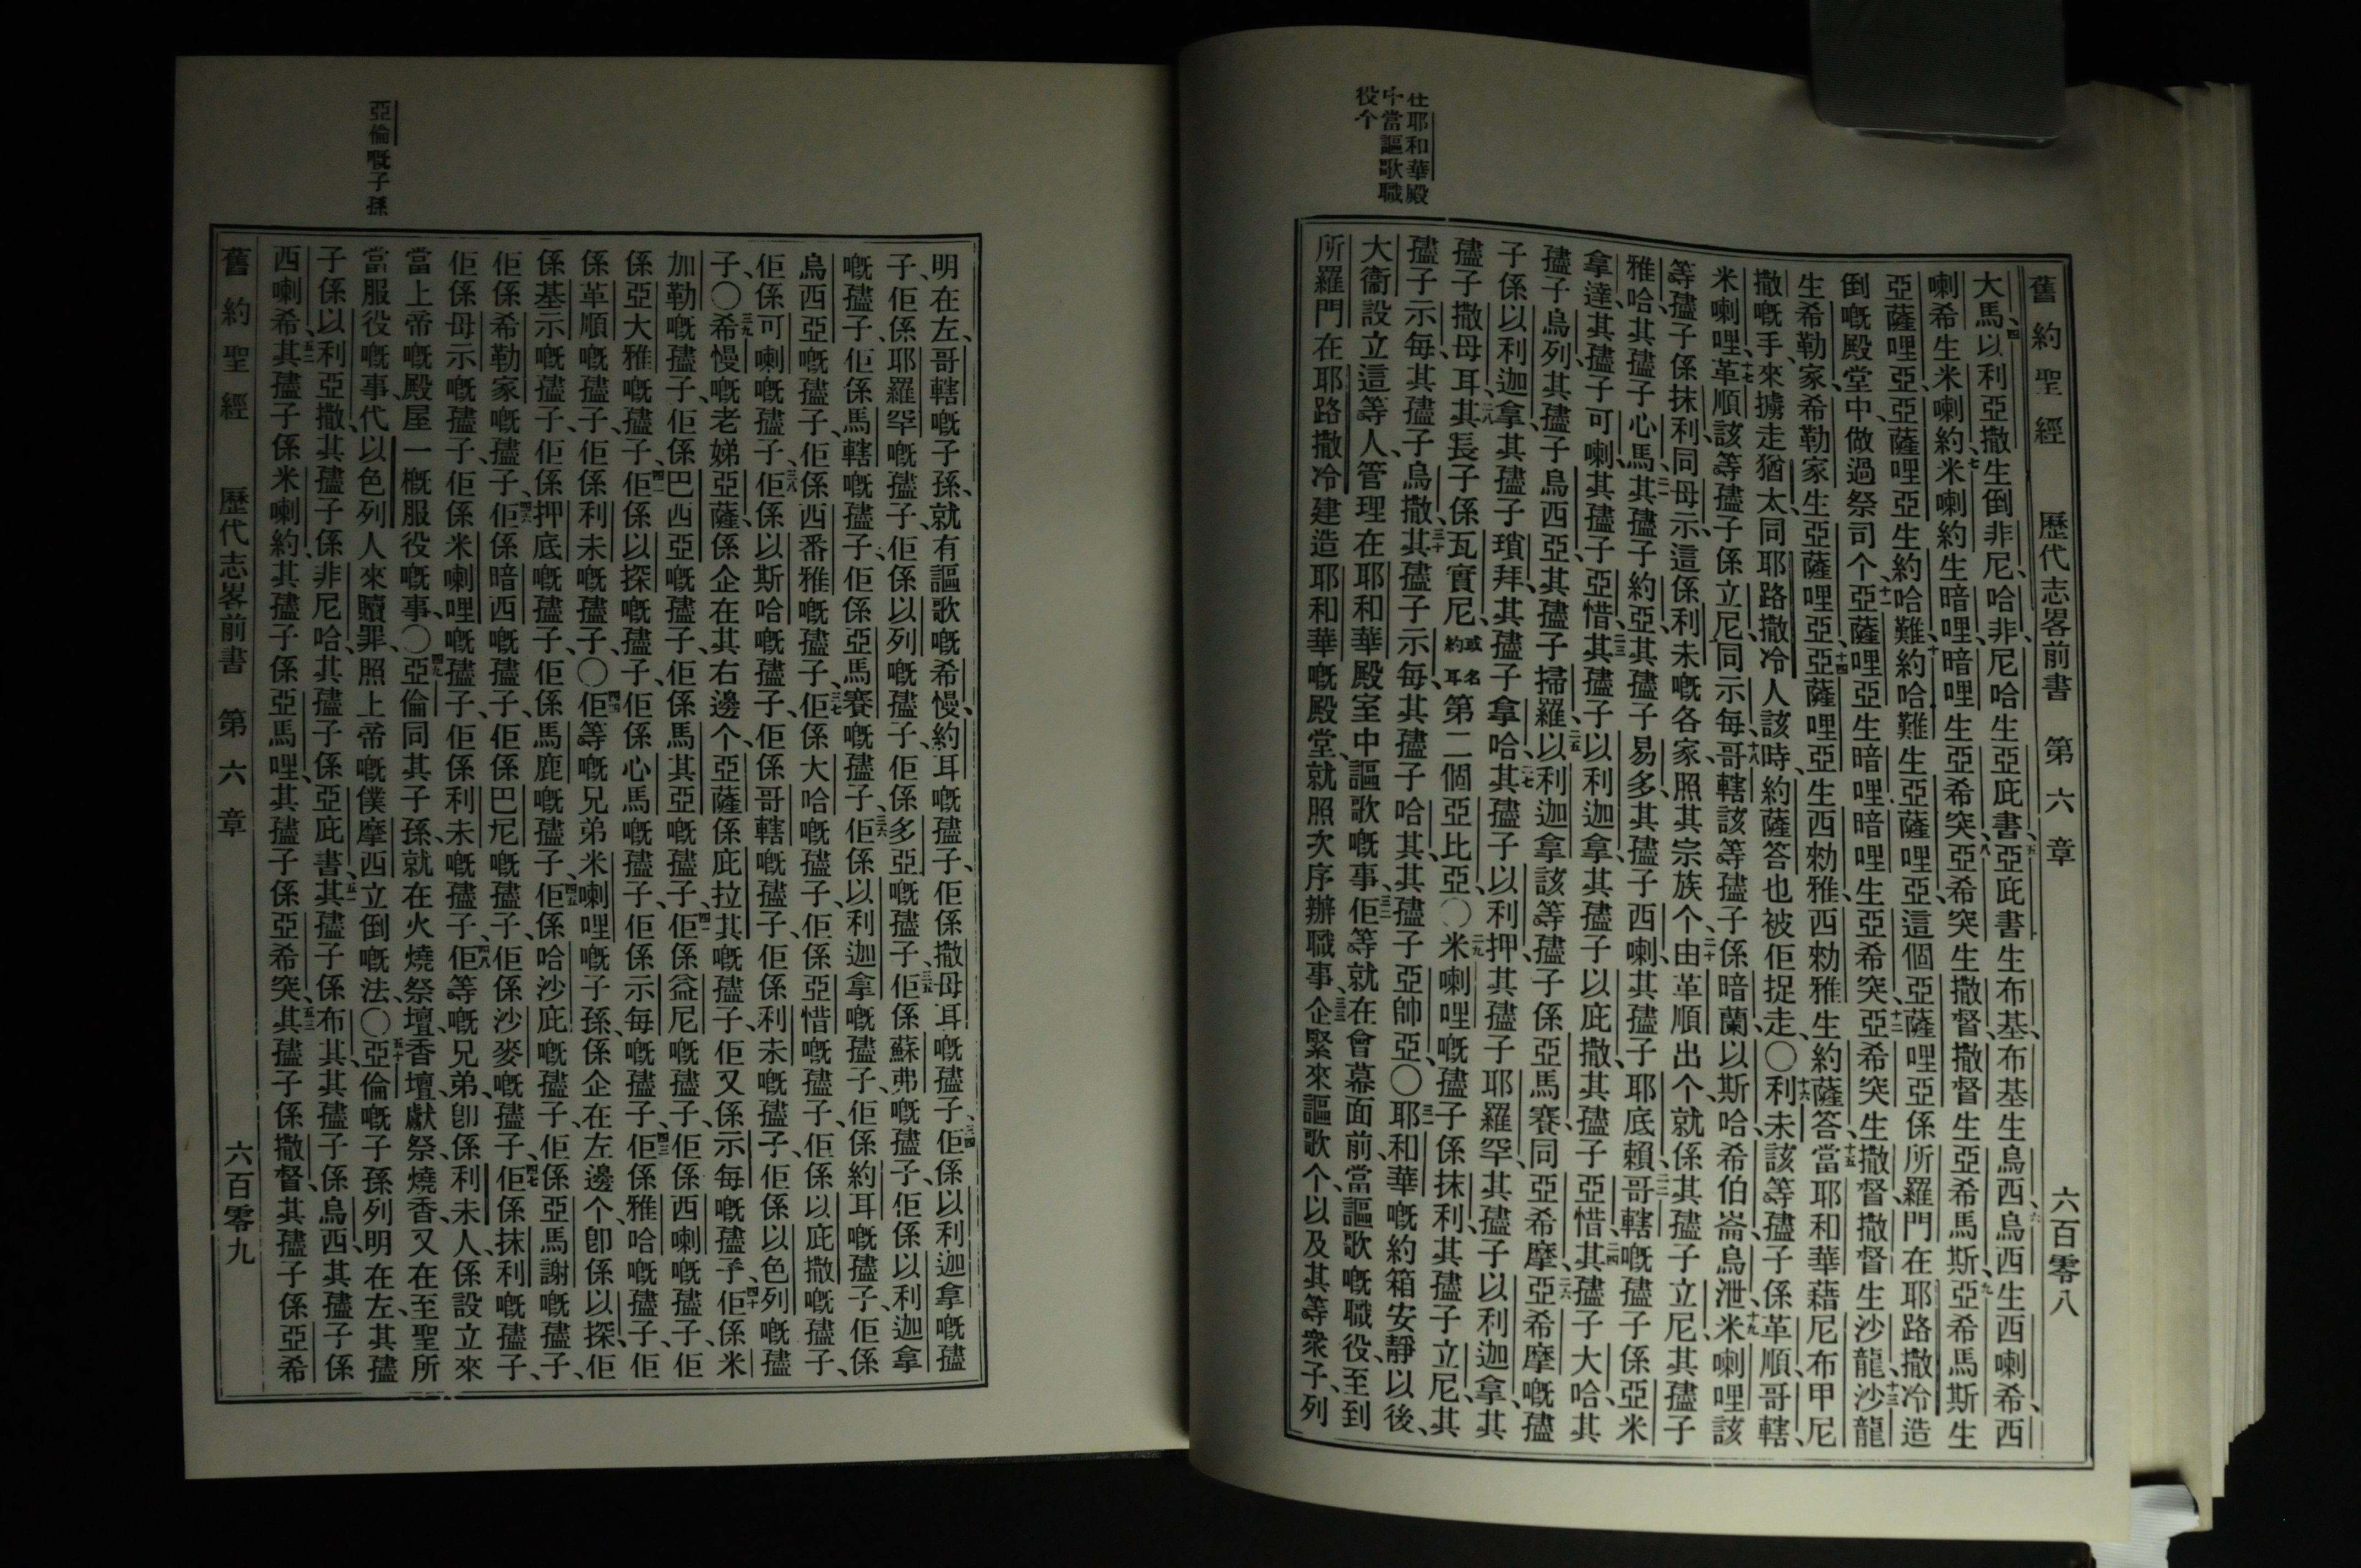 在耶和華殿
中當謳歌職
役个
舊約聖經 歷代志畧前書 第六章 六百零八
大馬、四以利亞撒生倒非尼哈、非尼哈生亞庇書、五亞庇書生布基、布基生烏西、六烏西生西喇希、西
喇希生米喇約、七米喇約生暗哩、暗哩生亞希突、八亞希突生撒督、撒督生亞希馬斯、九亞希馬斯生
亞薩哩亞、亞薩哩亞生約哈難、十約哈難生亞薩哩亞、這個亞薩哩亞係所羅門在耶路撒冷造
倒嘅殿堂中、做過祭司个、十一亞薩哩亞生暗哩、暗哩生亞希突、十二亞希突生撒督、撒督生沙龍、十三沙龍
生希勒家、希勒家生亞薩哩亞、十四亞薩哩亞生西勑雅、西勑雅生約薩答、十五當耶和華藉尼布甲尼
撒嘅手、來擄走猶太同耶路撒冷人該時、約薩答也被佢捉走、〇十六利未該等孻子係革順、哥轄、
米喇哩、十七革順該等孻子係立尼同示每、十八哥轄該等孻子係暗蘭、以斯哈、希伯崙、烏泄、十九米喇哩該
等孻子係抹利、同母示、這係利未嘅各家、照其宗族个、二十由革順出个、就係其孻子立尼、其孻子
雅哈、其孻子心馬、二一其孻子約亞、其孻子易多、其孻子西喇、其孻子耶底賴、二二哥轄嘅孻子係亞米
拿達、其孻子可喇、其孻子亞惜、二三其孻子以利迦拿、其孻子以庇撒、其孻子亞惜、二四其孻子大哈、其
孻子烏列、其孻子烏西亞、其孻子掃羅、二五以利迦拿該等孻子係亞馬賽、同亞希摩、二六亞希摩嘅孻
子係以利迦拿、其孻子瑣拜、其孻子拿哈、二七其孻子以利押、其孻子耶羅罕、其孻子以利迦拿、其
孻子撒母耳、二八其長子係瓦實尼、或名約耳第二個亞比亞、〇二九米喇哩嘅孻子係抹利、其孻子立尼、其
孻子示每、其孻子烏撒、三十其孻子示每、其孻子哈其、其孻子亞帥亞、〇三一耶和華嘅約箱安靜以後、
大衞設立這等人、管理在耶和華殿室中謳歌嘅事、三二佢等就在會幕面前、當謳歌嘅職役、至到
所羅門在耶路撒冷建造耶和華嘅殿堂、就照次序辦職事、三三企緊來謳歌个、以及其等衆子、列
亞倫嘅子孫
明在左、哥轄嘅子孫、就有謳歌嘅希慢、約耳嘅孻子、佢係撒母耳嘅孻子、三四佢係以利迦拿嘅孻
子、佢係耶羅罕嘅孻子、佢係以列嘅孻子、佢係多亞嘅孻子、三五佢係蘇弗嘅孻子、佢係以利迦拿
嘅孻子、佢係馬轄嘅孻子、佢係亞馬賽嘅孻子、三六佢係以利迦拿嘅孻子、佢係約耳嘅孻子、佢係
烏西亞嘅孻子、佢係西番雅嘅孻子、三七佢係大哈嘅孻子、佢係亞惜嘅孻子、佢係以庇撒嘅孻子、
佢係可喇嘅孻子、三八佢係以斯哈嘅孻子、佢係哥轄嘅孻子、佢係利未嘅孻子、佢係以色列嘅孻
子、〇三九希慢嘅老娣亞薩、係企在其右邊个、亞薩係庇拉其嘅孻子、佢又係示每嘅孻子、四十佢係米
加勒嘅孻子、佢係巴西亞嘅孻子、佢係馬其亞嘅孻子、四一佢係益尼嘅孻子、佢係西喇嘅孻子、佢
係亞大雅嘅孻子、四二佢係以探嘅孻子、佢係心馬嘅孻子、佢係示每嘅孻子、四三佢係雅哈嘅孻子、佢
係革順嘅孻子、佢係利未嘅孻子、〇四四佢等嘅兄弟米喇哩嘅子孫、係企在左邊个、卽係以探、佢
係基示嘅孻子、佢係押底嘅孻子、佢係馬鹿嘅孻子、四五佢係哈沙庇嘅孻子、佢係亞馬謝嘅孻子、
佢係希勒家嘅孻子、四六佢係暗西嘅孻子、佢係巴尼嘅孻子、佢係沙麥嘅孻子、四七佢係抹利嘅孻子、
佢係母示嘅孻子、佢係米喇哩嘅孻子、佢係利未嘅孻子、四八佢等嘅兄弟、卽係利未人、係設立來
當上帝嘅殿屋一概服役嘅事、〇四九亞倫同其子孫、就在火燒祭壇、香壇、獻祭、燒香、又在至聖所
當服役嘅事、代以色列人來贖罪、照上帝嘅僕摩西立倒嘅法、〇五十亞倫嘅子孫列明在左、其孻
子係以利亞撒、其孻子係非尼哈、其孻子係亞庇書、五一其孻子係布其、其孻子係烏西、其孻子係
西喇希、五二其孻子係米喇約、其孻子係亞馬哩、其孻子係亞希突、五三其孻子係撒督、其孻子係亞希
舊約聖經 歷代志畧前書 第六章 六百零九